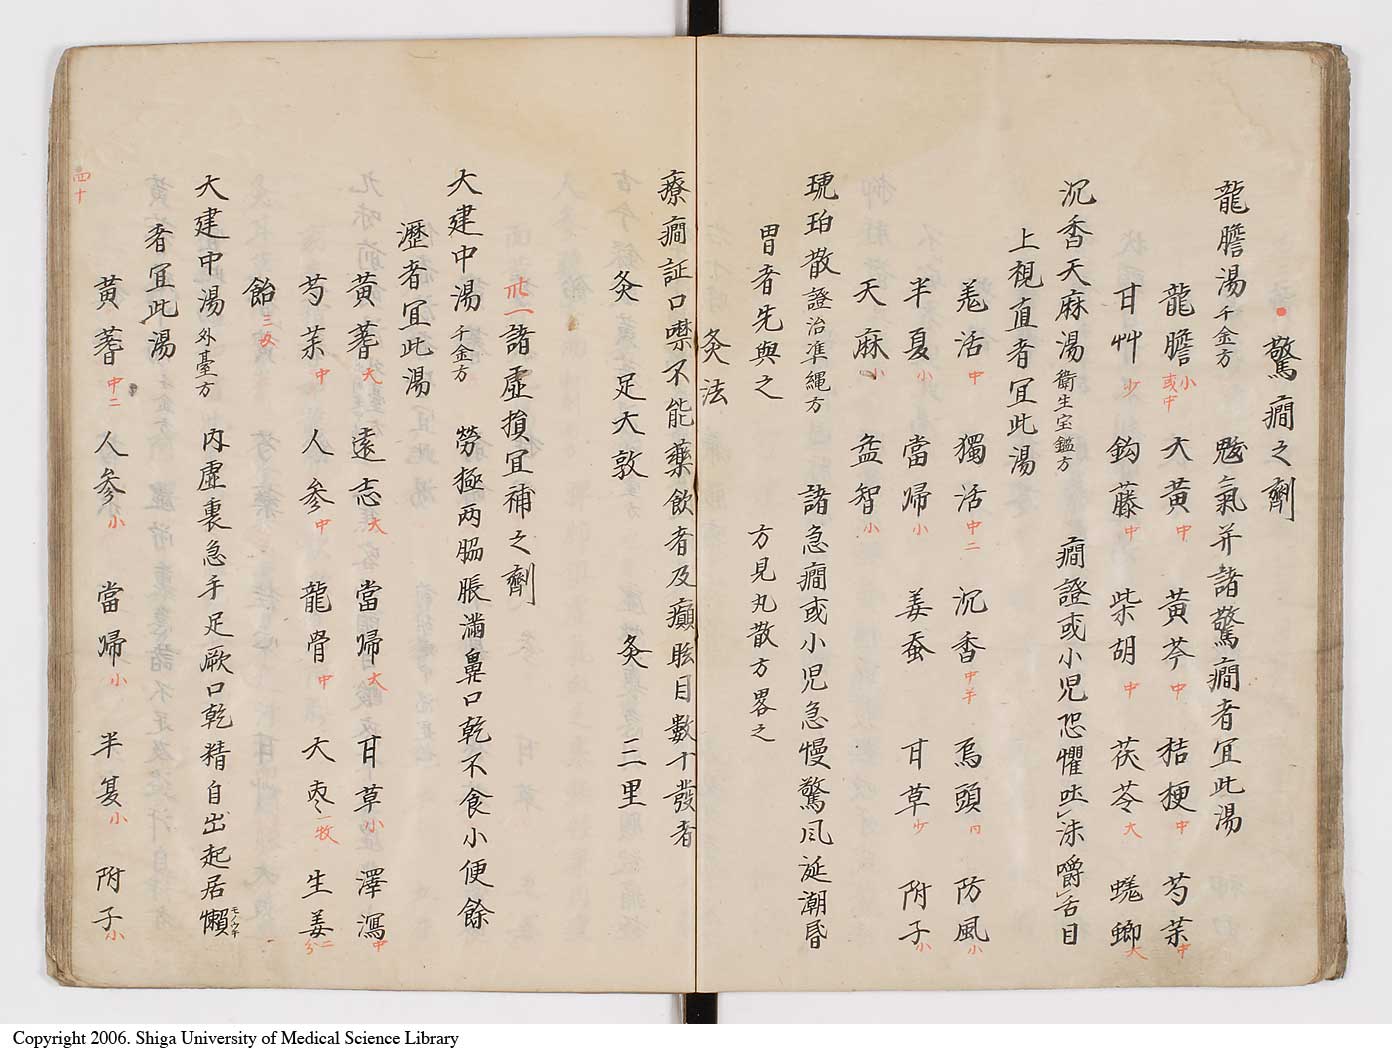 驚癇之劑
龍膽湯 千金方 魃氣并諸驚癇者宜此湯
龍膽 小或中 大黃 中 黃芩 中 桔梗 中 芍茱 中
甘艸 少 鈎藤 中 柴胡 中 茯苓 大 蜣螂 大
沉香天麻湯 衛生宝鑑方 癇證或小児恐懼 沫嚼舌目
上視直者宜此湯
羌活 中 獨活 中二 沉香 中半 烏頭 防風 小
半夏 小 當帰 小 姜蚕 甘草 少 附子 小
天麻 小 益智 小
琥珀散 證治凖縄方 諸急癇或小児急慢驚风涎潮昏
冒者先與之 方見丸散方畧之
灸法
療癇証口噤不能藥飲者及癲眩目數十發者
灸 足大敦 灸 三里
卅一 諸虛損宜補之劑
大建中湯 千金方 勞極两腸脹滿鼻口乾不食小便餘
瀝者宜此湯
黃蓍 大 遠志 大 當帰 大 甘草 小 澤瀉 中
芍茱 中 人参 中 龍骨 中 大枣 一牧 生姜 二分
飴 三匁
大建中湯 外臺方 内虛裏急手足厥口乾精自出起居懶 モノウキ
者宜此湯
黃蓍 中二 人参 小 當帰 小 半夏 小 附子 小
四十
Copyright 2006. Shiga University of Medical Science Library